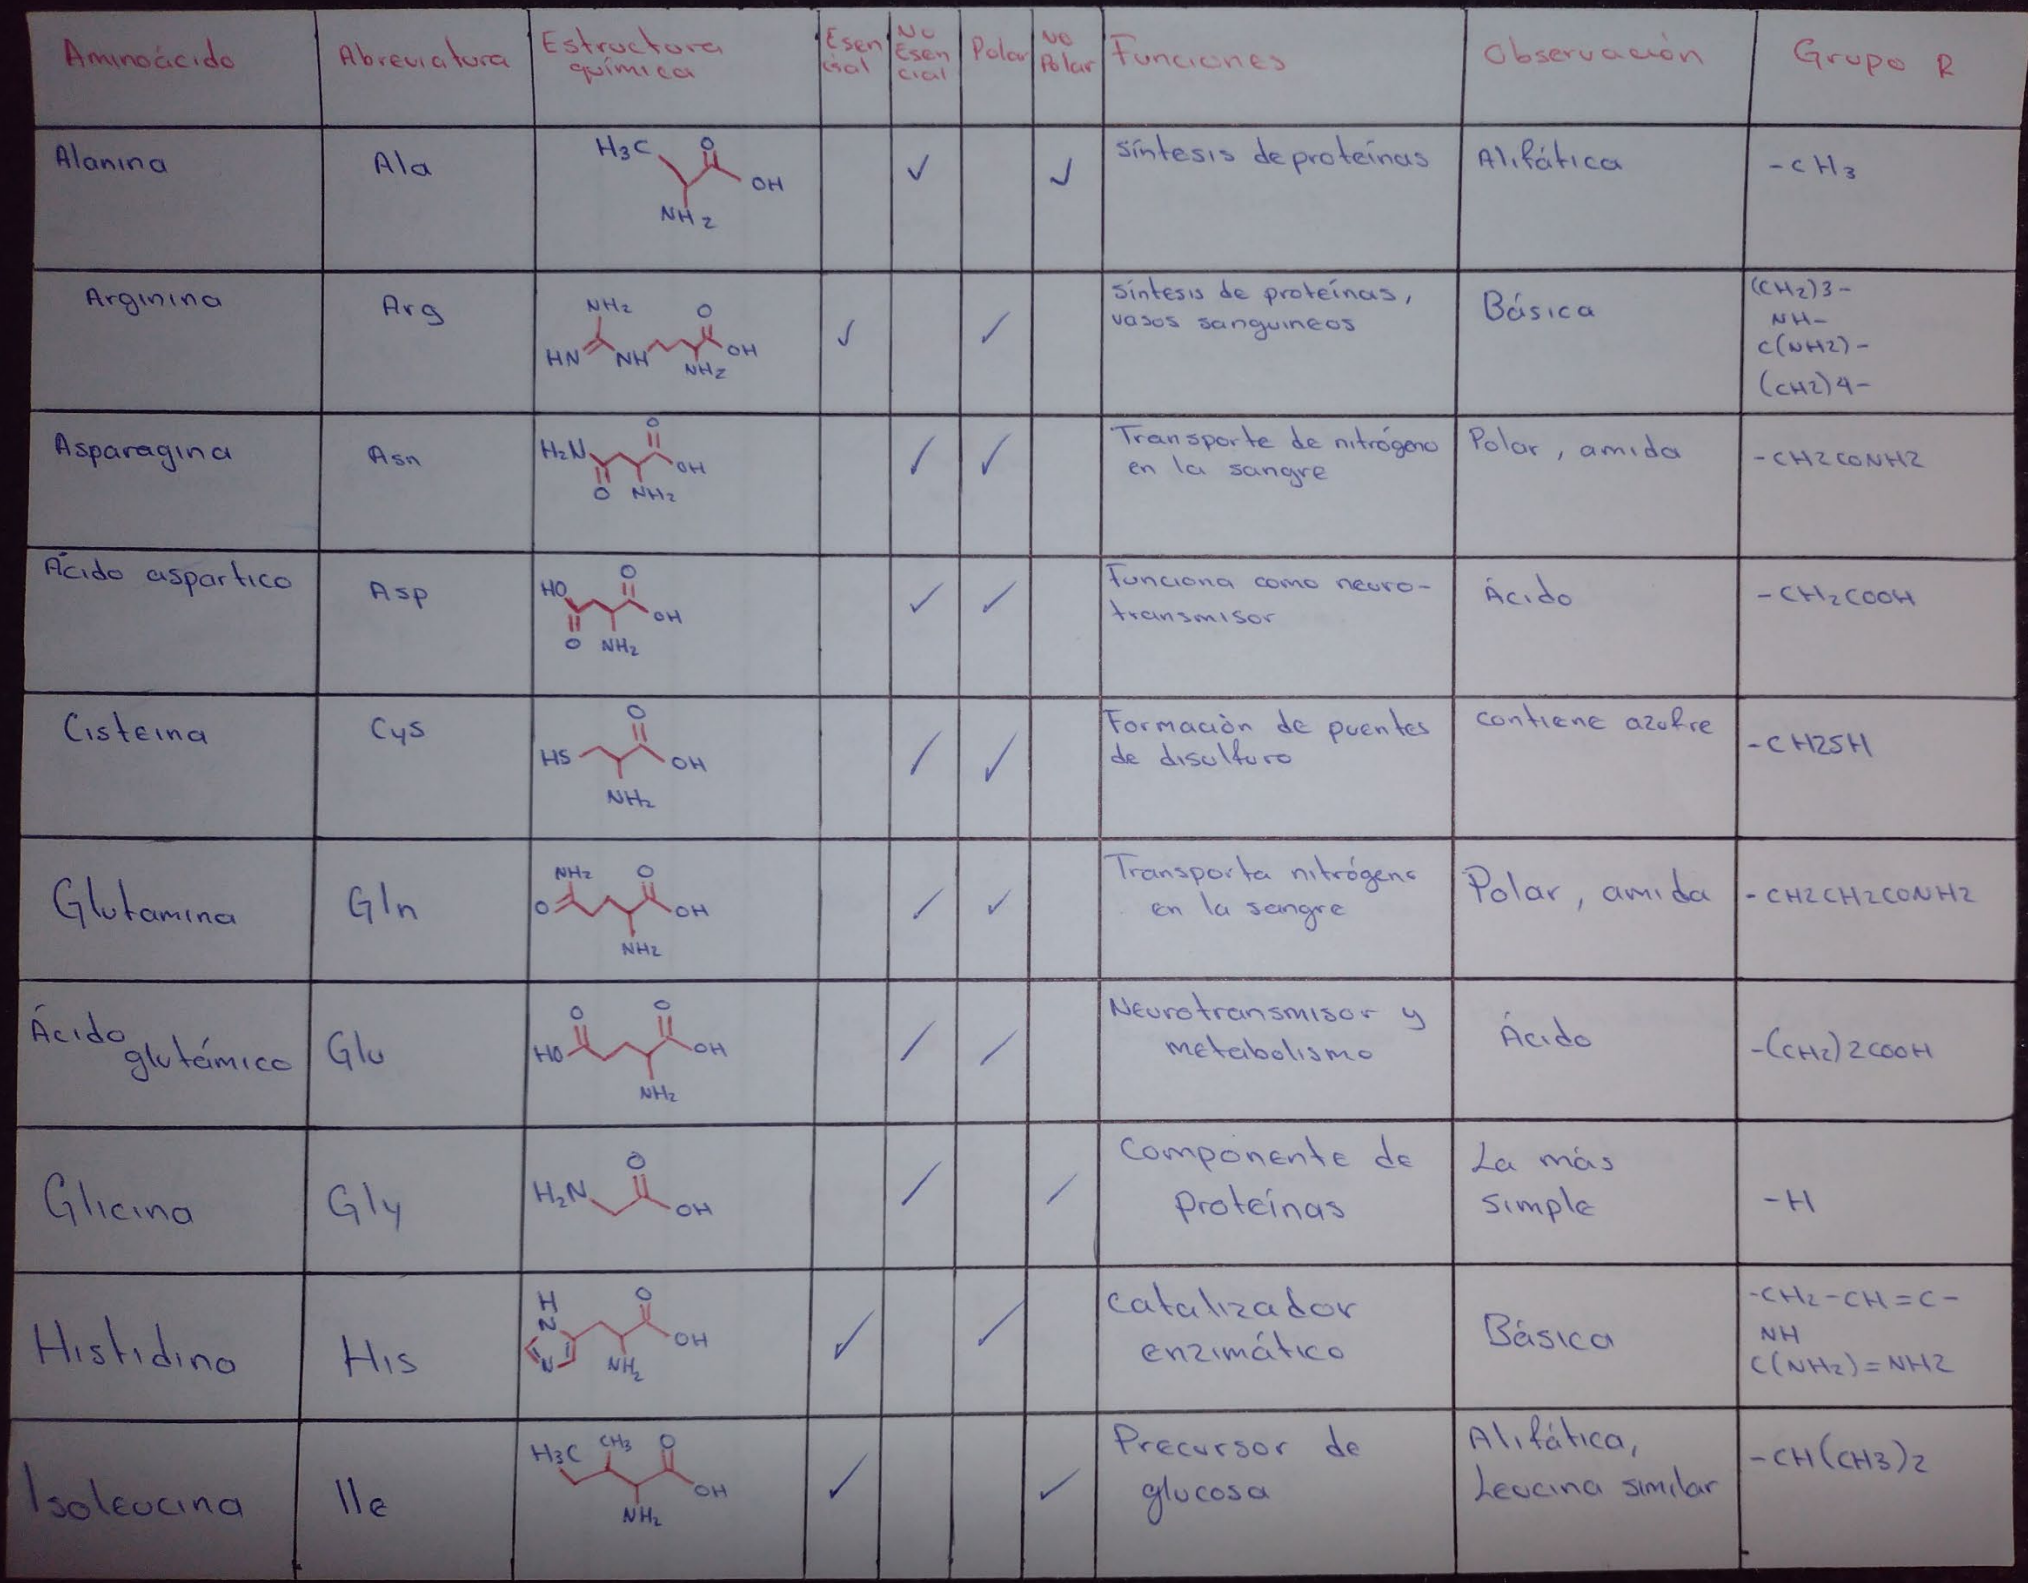 Aminoácido
Abreviatura
Estructura
química
Esen
cial
No
Esen
cial
Polar
No
Polar
Funciones
Observación
Grupo R
Alanina
Ala
H3C
O
OH
NH2
✓
✓
síntesis de proteínas
Alifática
-CH3
Arginina
Arg
NH2
O
HN
NH
OH
NH2
✓
✓
síntesis de proteínas,
vasos sanguineos
Básica
(CH2)3-
NH-
C(NH2)-
(CH2)4-
Asparagina
Asn
O
H2N
OH
O
NH2
✓
✓
Transporte de nitrógeno
en la sangre
Polar, amida
-CH2CONH2
Ácido aspartico
Asp
HO
O
OH
O
NH2
✓
✓
Funciona como neuro-
transmisor
Ácido
-CH2COOH
Cisteina
Cys
O
HS
OH
NH2
✓
✓
Formación de puentes
de disulfuro
contiene azufre
-CH2SH
Glutamina
Gln
NH2
O
O
OH
NH2
✓
✓
Transporta nitrógeno
en la sangre
Polar, amida
-CH2CH2CONH2
Ácido
glutámico
Glu
O
O
HO
OH
NH2
✓
✓
Neurotransmisor y
metabolismo
Ácido
-(CH2)2COOH
Glicina
Gly
O
H2N
OH
✓
✓
Componente de
Proteínas
La más
simple
-H
Histidino
His
H
N
O
OH
N
NH2
✓
✓
catalizador
enzimático
Básica
-CH2-CH=C-
NH
C(NH2)=NH2
Isoleucina
Ile
H3C
CH3
O
OH
NH2
✓
✓
Precursor de
glucosa
Alifática,
Leucina similar
-CH(CH3)2